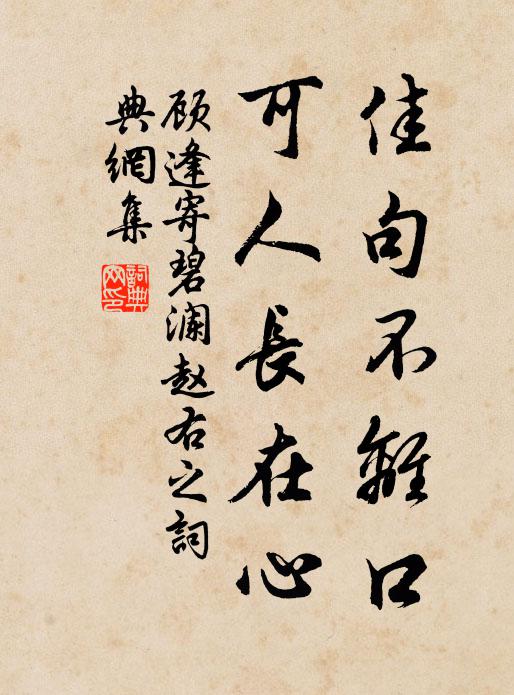 佳句不離口
可人長在心
顾逢寄碧澜赵右之詞
典網集
詞典网印